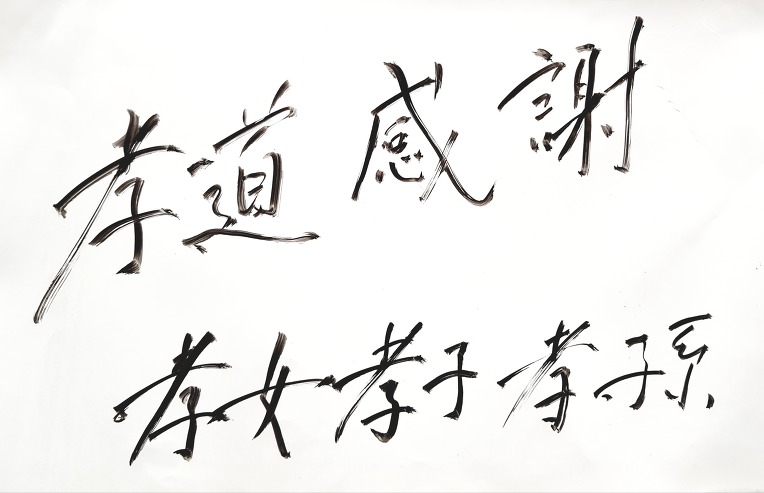 孝道感謝
孝女孝子孝孫